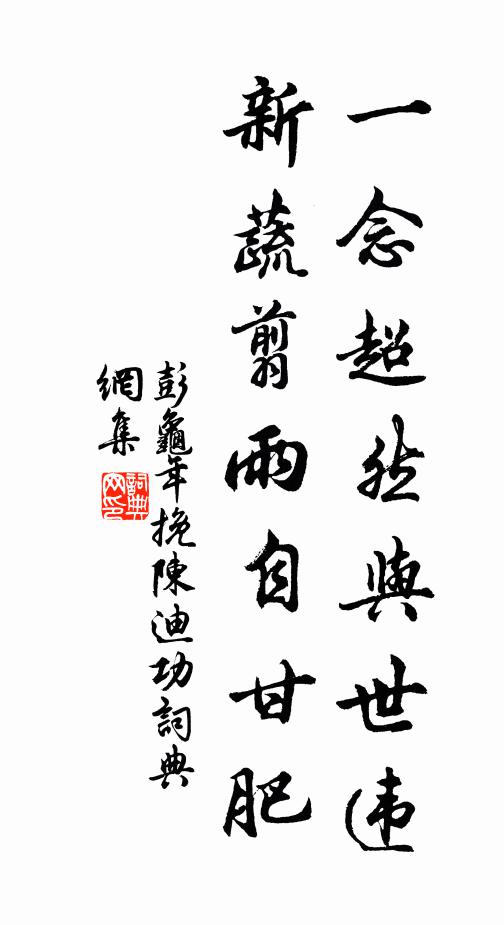 一念超然與世違
新蔬翦雨自甘肥
彭龜年挽陳迪功詞典
網集
詞典
网印